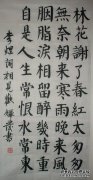 林花謝了春紅太匆匆
無奈朝來寒雨晚來風
胭脂淚相留醉幾時重
自是人生常恨水常東
李煜詞相見歡